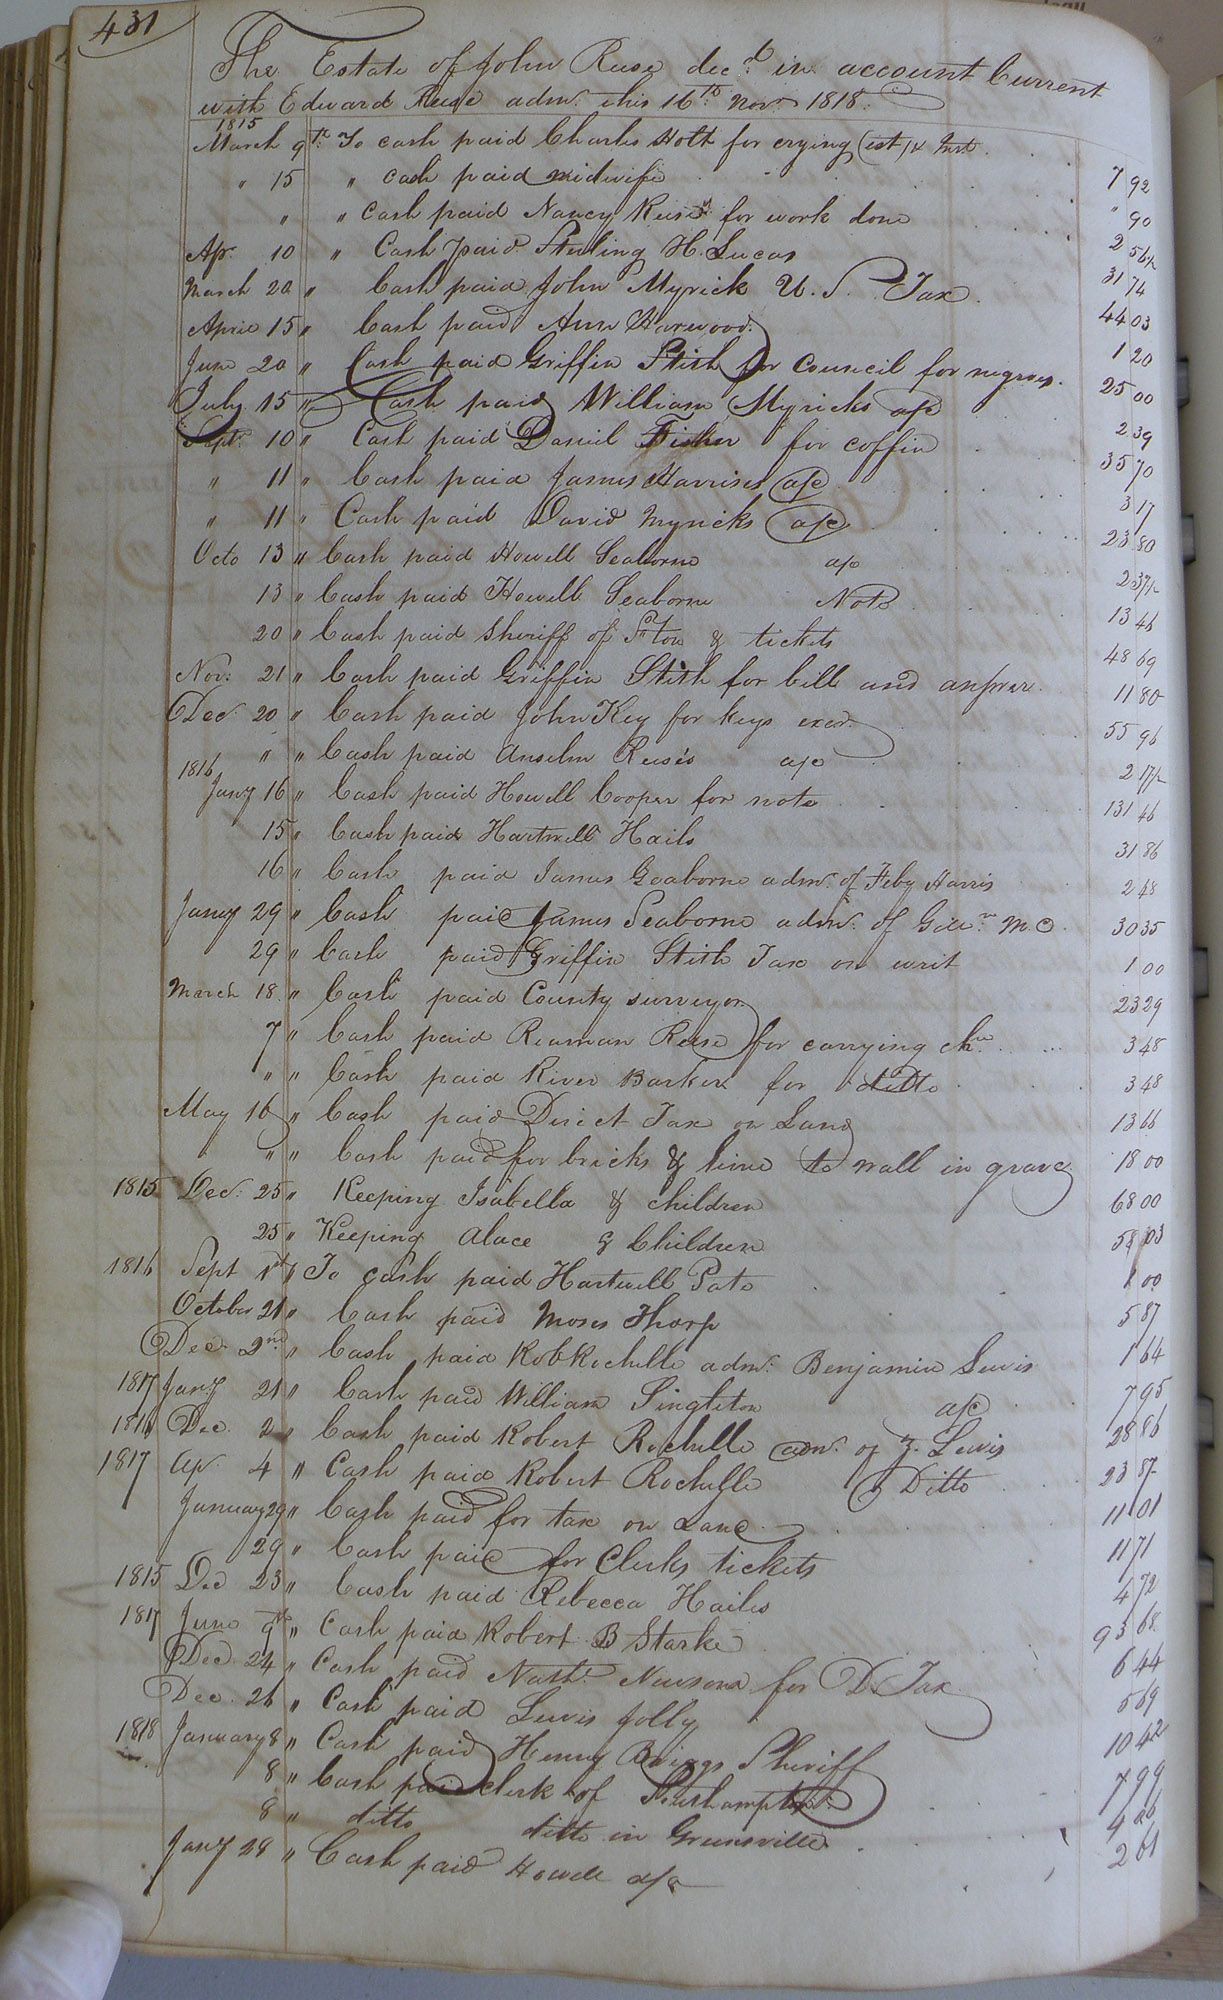 431
The Estate of John Reese decd. in account Current
with Edward Reese admr. this 16th Novr 1818.
1815
March 9th To cash paid Charles Holt for crying (est) & Inst 7 92
" 15 " cash paid midwife " 90
" " cash paid Nancy Reese for work done 2 56½
Apr. 10 " Cash paid Sterling H. Lucas 31 74
March 20 " Cash paid John Myrick U.S. Tax 44 03
April 15 " Cash paid Ann Harwood 1 20
June 20 " Cash paid Griffin Stith for council for negroes. 25 00
July 15 " Cash paid William Myricks a/c 2 39
Sept. 10 " Cash paid Daniel Fisher for coffin 35 70
" 11 " Cash paid James Harrises a/c 3 17
" 11 " Cash paid David Myricks a/c 23 80
Octo 13 " Cash paid Howell Seaborne a/c 2 37½
13 " Cash paid Howell Seaborne Note 13 46
20 " Cash paid sheriff of S.ton Ct & tickets 48 69
Nov: 21 " Cash paid Griffin Stith for bill and answer. 11 80
Dec. 20 " Cash paid John Key for keys exor. 55 96
" " Cash paid Anselm Reese's a/c 2 17½
1816
Jany 16 " Cash paid Howell Cooper for note 131 46
15 " Cash paid Hartwell Hails 31 86
16 " Cash paid James Seaborne admr. of Feby Harris 2 48
Jany 29 " Cash paid James Seaborne admr. of Gilln. M.C. 30 35
29 " Cash paid Griffin Stith Tax on writ 1 00
March 18. " Cash paid County surveyor 23 29
7 " Cash paid Reaman Reese for carrying chn 3 48
" " Cash paid River Barker for ditto 3 48
May 16 " Cash paid Direct Tax on Land 13 66
" " Cash paid for bricks & lime to wall in grave 18 00
1815 Dec. 25 " Keeping Isabella & children 68 00
25 " Keeping Alace & Children 58 03
1816 Sept 1st " To cash paid Hartwell Pate 1 00
October 21 " Cash paid Moses Tharp 5 87
Dec. 2nd. " Cash paid Rob Rochelle admr. Benjamin Lewis 1 64
1817 Jany 21 " Cash paid William Singleton a/c 7 95
1816 Dec. 2 " Cash paid Robert Rochelle admr. of Z. Lewis 28 86
1817 Ap. 4 " Cash paid Robert Rochelle Ditto 23 87
January 29 " Cash paid for tax on Land 11 01
29 " Cash paid for Clerks tickets 11 71
1815 Dec 23 " Cash paid Rebecca Hailes 4 72
1817 June 9th " Cash paid Robert B Starke 93 68
Dec. 24 " Cash paid Nathl. Newsom for D. Tax 6 44
Dec. 26 " Cash paid Lewis Jolly 5 69
1818 January 8 " Cash paid Henry Briggs Sheriff 10 42
8 " Cash paid clerk of Southampton 7 99
8 " ditto ditto in Greensville 4
Jany 28 " Cash paid Howell a/c 2 61